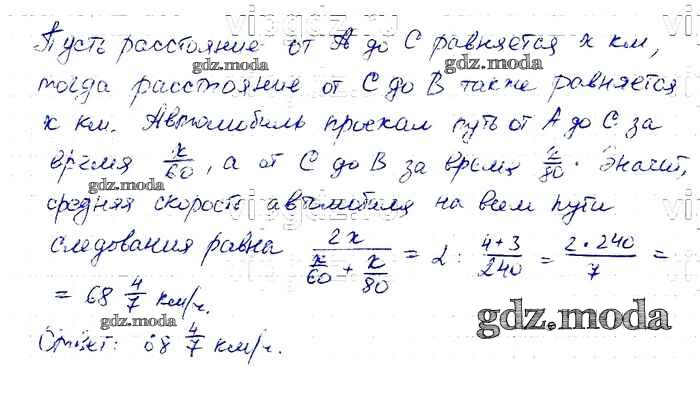 vipgdz.ru
Пусть расстояние от А до С равняется x км,
gdz.moda gdz.moda
тогда расстояние от С до В также равняется
x км. Автомобиль проехал путь от А до С за
время x/60, а от С до В за время x/80. Значит,
gdz.moda gdz.moda
средняя скорость автомобиля на всем пути
следования равна 2x/(x/60 + x/80) = 2 : (4+3)/240 = (2·240)/7 =
gdz.moda
= 68 4/7 км/ч.
gdz.moda gdz.moda
Ответ: 68 4/7 км/ч.